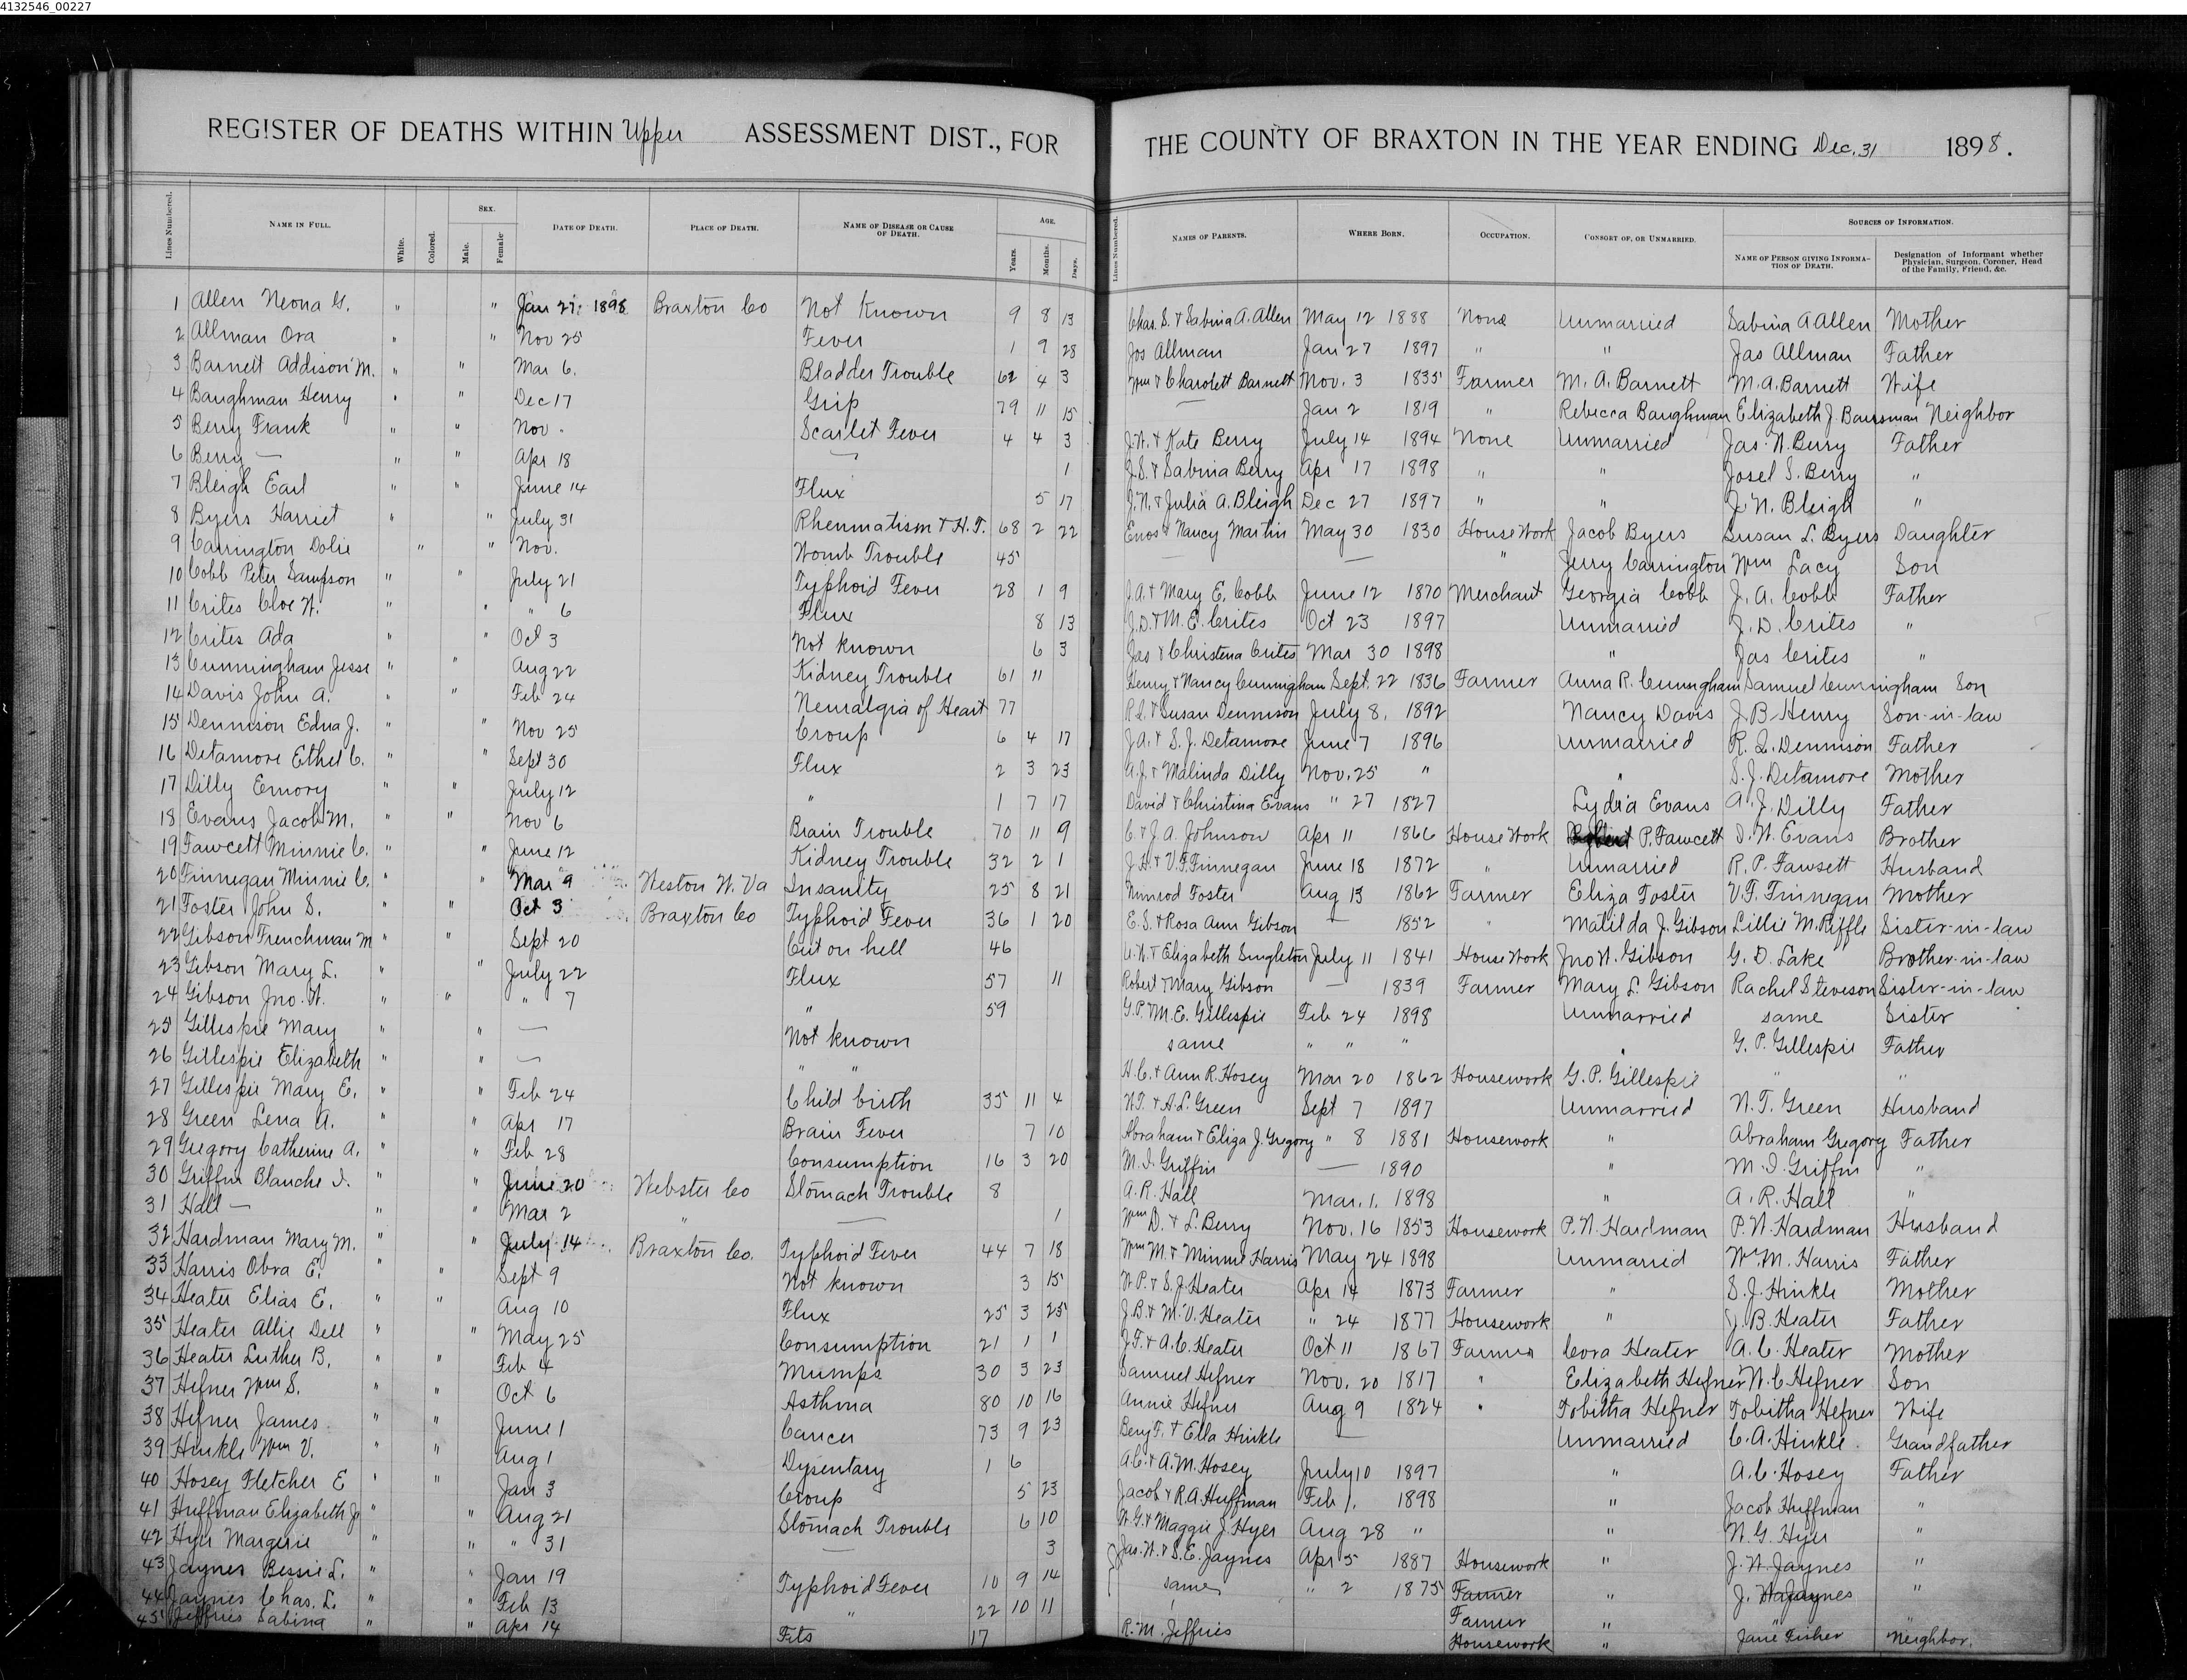 4132546_00227
REGISTER OF DEATHS WITHIN Upper ASSESSMENT DIST., FOR
Lines Numbered. NAME IN FULL. White. Colored. SEX. Male. Female. DATE OF DEATH. PLACE OF DEATH. NAME OF DISEASE OR CAUSE OF DEATH. AGE. Years. Months. Days.
1 Allen Neona G. " " Jan 27 1898 Braxton Co Not Known 9 8 13
2 Allman Ora " " Nov 25 Fever 1 9 28
3 Barnett Addison M. " " Mar 6. Bladder Trouble 62 4 3
4 Baughman Henry " " Dec 17 Grip 79 11 15
5 Berry Frank " " Nov. Scarlet Fever 4 4 3
6 Berry — " " Apr 18 — 1
7 Bleigh Earl " " June 14 Flux 5 17
8 Byers Harriet " " July 31 Rheumatism & H.T. 68 2 22
9 Carrington Dolie " " Nov. Womb Trouble 45
10 Cobb Peter Sampson " " July 21 Typhoid Fever 28 1 9
11 Crites Cloe W. " " " 6 Flux 8 13
12 Crites Ada " " Oct 3 Not known 6 3
13 Cunningham Jesse " " Aug 22 Kidney Trouble 61 11
14 Davis John A. " " Feb 24 Neuralgia of Heart 77
15 Dennison Edna J. " " Nov 25 Croup 6 4 17
16 Detamore Ethel C. " " Sept 30 Flux 2 3 23
17 Dilly Emory " " July 12 " 1 7 17
18 Evans Jacob M. " " Nov 6 Brain Trouble 70 11 9
19 Fawcett Minnie C. " " June 12 Kidney Trouble 32 2 1
20 Finnegan Minnie C. " " Mar 9 Weston W. Va Insanity 25 8 21
21 Foster John S. " " Oct 3 Braxton Co Typhoid Fever 36 1 20
22 Gibson Frenchman M " " Sept 20 Cut on hell 46
23 Gibson Mary L. " " July 22 Flux 57 11
24 Gibson Jno. W. " " " 7 " 59
25 Gillespie Mary " " — Not known
26 Gillespie Elizabeth " " — " "
27 Gillespie Mary E. " " Feb 24 Child birth 35 11 4
28 Green Lena A. " Apr 17 Brain Fever 7 10
29 Gregory Catherine A. " " Feb 28 Consumption 16 3 20
30 Griffin Blanche I. " " June 20 Webster Co Stomach Trouble 8
31 Hall — " " Mar 2 " — 1
32 Hardman Mary M. " " July 14 Braxton Co. Typhoid Fever 44 7 18
33 Harris Obra E. " " Sept 9 Not known 3 15
34 Heater Elias E. " " Aug 10 Flux 25 3 25
35 Heater Allie Dell " " May 25 Consumption 21 1 1
36 Heater Luther B. " " Feb 4 Mumps 30 3 23
37 Hefner Wm S. " " Oct 6 Asthma 80 10 16
38 Hefner James " " June 1 Cancer 73 9 23
39 Hinkle Wm V. " " Aug 1 Dysentary 1 6
40 Hosey Fletcher E " " Jan 3 Croup 5 23
41 Huffman Elizabeth J. " " Aug 21 Stomach Trouble 6 10
42 Hyer Margerie " " " 31 — 3
43 Jaynes Bessie L. " " Jan 19 Typhoid Fever 10 9 14
44 Jaynes Chas. L. " " Feb 13 " 22 10 11
45 Jeffries Sabina " " Apr 14 Fits 17
THE COUNTY OF BRAXTON IN THE YEAR ENDING Dec. 31 1898.
Lines Numbered. NAMES OF PARENTS. WHERE BORN. OCCUPATION. CONSORT OF, OR UNMARRIED. SOURCES OF INFORMATION. NAME OF PERSON GIVING INFORMATION OF DEATH. Designation of Informant whether Physician, Surgeon, Coroner, Head of the Family, Friend, &c.
Chas. S. & Sabina A. Allen May 12 1888 None Unmarried Sabina A Allen Mother
Jos Allman Jan 27 1897 " " Jas Allman Father
Wm & Charolett Barnett Nov. 3 1835 Farmer M. A. Barnett M. A. Barnett Wife
— Jan 2 1819 " Rebecca Baughman Elizabeth J. Neighbor
J. W. & Kate Berry July 14 1894 None Unmarried Jas. W. Berry Father
J. S. & Sabina Berry Apr 17 1898 " " Josel S. Berry "
J. N. & Julia A. Bleigh Dec 27 1897 " " J. N. Bleigh "
Enos & Nancy Martin May 30 1830 House Work Jacob Byers Susan L. Byers Daughter
— — " Jerry Carrington Wm Lacy Son
J. A. & Mary E. Cobb June 12 1870 Merchant Georgia Cobb J. A. Cobb Father
J. D. & M. E. Crites Oct 23 1897 Unmarried J. D. Crites "
Jas & Christena Crites Mar 30 1898 " Jas Crites "
Henry & Nancy Cunnigham Sept. 22 1836 Farmer Anna R. Cunngham Samuel Cunnigham Son
R. L. & Susan Dennison July 8, 1892 Nancy Davis J. B. Henry Son-in-law
J. A. & S. J. Detamore June 7 1896 Unmarried R. L. Dennison Father
A. J. & Malinda Dilly Nov. 25 " " S. J. Detamore Mother
David & Christina Evans " 27 1827 Lydia Evans A. J. Dilly Father
C. & J. A. Johnson Apr 11 1866 House Work P. Fawcett D. W. Evans Brother
J. H. & V. F. Finnegan June 18 1872 " Unmarried R. P. Fawsett Husband
Nimrod Foster Aug 13 1862 Farmer Eliza Foster V. F. Finnegan Mother
E. S. & Rosa Ann Gibson — 1852 " Matilda J. Gibson Lillie M. Riffle Sister-in-law
A. W. & Elizabeth Singleton July 11 1841 House Work Jno W. Gibson G. D. Lake Brother-in-law
Robert & Mary Gibson — 1839 Farmer Mary L. Gibson Rachel Steveson Sister-in-law
G. P. M. E. Gillespie Feb 24 1898 Unmarried same Sister
same " " " " G. P. Gillespie Father
H. C. & Ann R. Hosey Mar 20 1862 Housework G. P. Gillespie " "
W. T. & A. L. Green Sept 7 1897 Unmarried W. T. Green Husband
Abraham & Eliza J. Gregory " 8 1881 Housework " Abraham Gregory Father
M. I. Griffin — 1890 " M. I. Griffin "
A. R. Hall Mar. 1. 1898 " A. R. Hall "
Wm D. & L. Berry Nov. 16 1853 Housework P. N. Hardman P. N. Hardman Husband
Wm M. & Minnie Harris May 24 1898 Unmarried Wm. M. Harris Father
W. P. & S. J. Heater Apr 14 1873 Farmer " S. J. Hinkle Mother
J. B. & M. V. Heater " 24 1877 Housework " J. B. Heater Father
J. T. & A. C. Heater Oct 11 1867 Farmer Cora Heater A. C. Heater Mother
Samuel Hefner Nov. 20 1817 " Elizabeth Hefner W. C. Hefner Son
Annie Hefner Aug 9 1824 " Tobitha Hefner Tobitha Hefner Wife
Benj F. & Ella Hinkle — Unmarried C. A. Hinkle Grandfather
A. C. & A. M. Hosey July 10 1897 " A. C. Hosey Father
Jacob & R. A. Huffman Feb 1. 1898 " Jacob Huffman "
W. G. & Maggie J. Hyer Aug 28 " " W. G. Hyer "
Jas. W. & S. E. Jaynes Apr 5 1887 Housework " J. W. Jaynes "
same " 2 1875 Farmer " J. W. Jaynes "
Farmer " "
R. M. Jeffries Housework " Jane Fisher Neighbor.